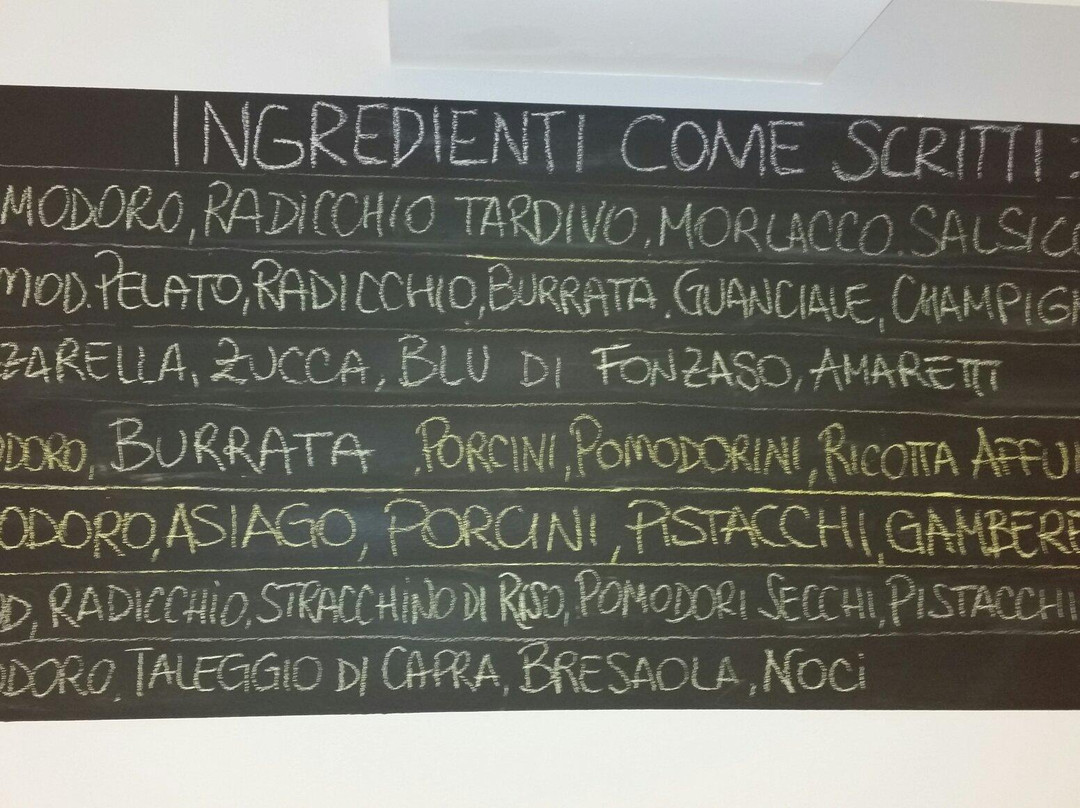 INGREDIENTI COME SCRITTI :
MODORO, RADICCHIO TARDIVO, MORLACCO. SALSICC
MOD. PELATO, RADICCHIO, BURRATA, GUANCIALE, CHAMPIGN
ZZARELLA, ZUCCA, BLU DI FONZASO, AMARETTI
ODORO, BURRATA , PORCINI, POMODORINI, RICOTTA AFFUM
ODORO, ASIAGO, PORCINI, PISTACCHI, GAMBERE
OD, RADICCHIO, STRACCHINO DI RISO, POMODORI SECCHI, PISTACCHI
ODORO, TALEGGIO DI CAPRA, BRESAOLA, NOCI